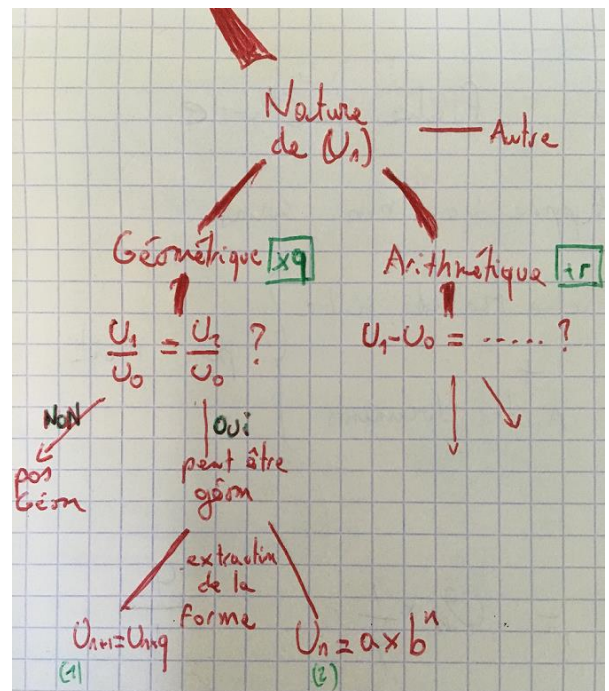 Nature
de (Un)
Autre
Géométrique ×q
Arithmétique +r
U1/U0 = U2/U0 ?
U1-U0 = ..... ?
NON
OUI
pas
Géom
peut être
géom
extraction
de la
forme
Un+1=Un×q
Un = a × b^n
(1)
(2)